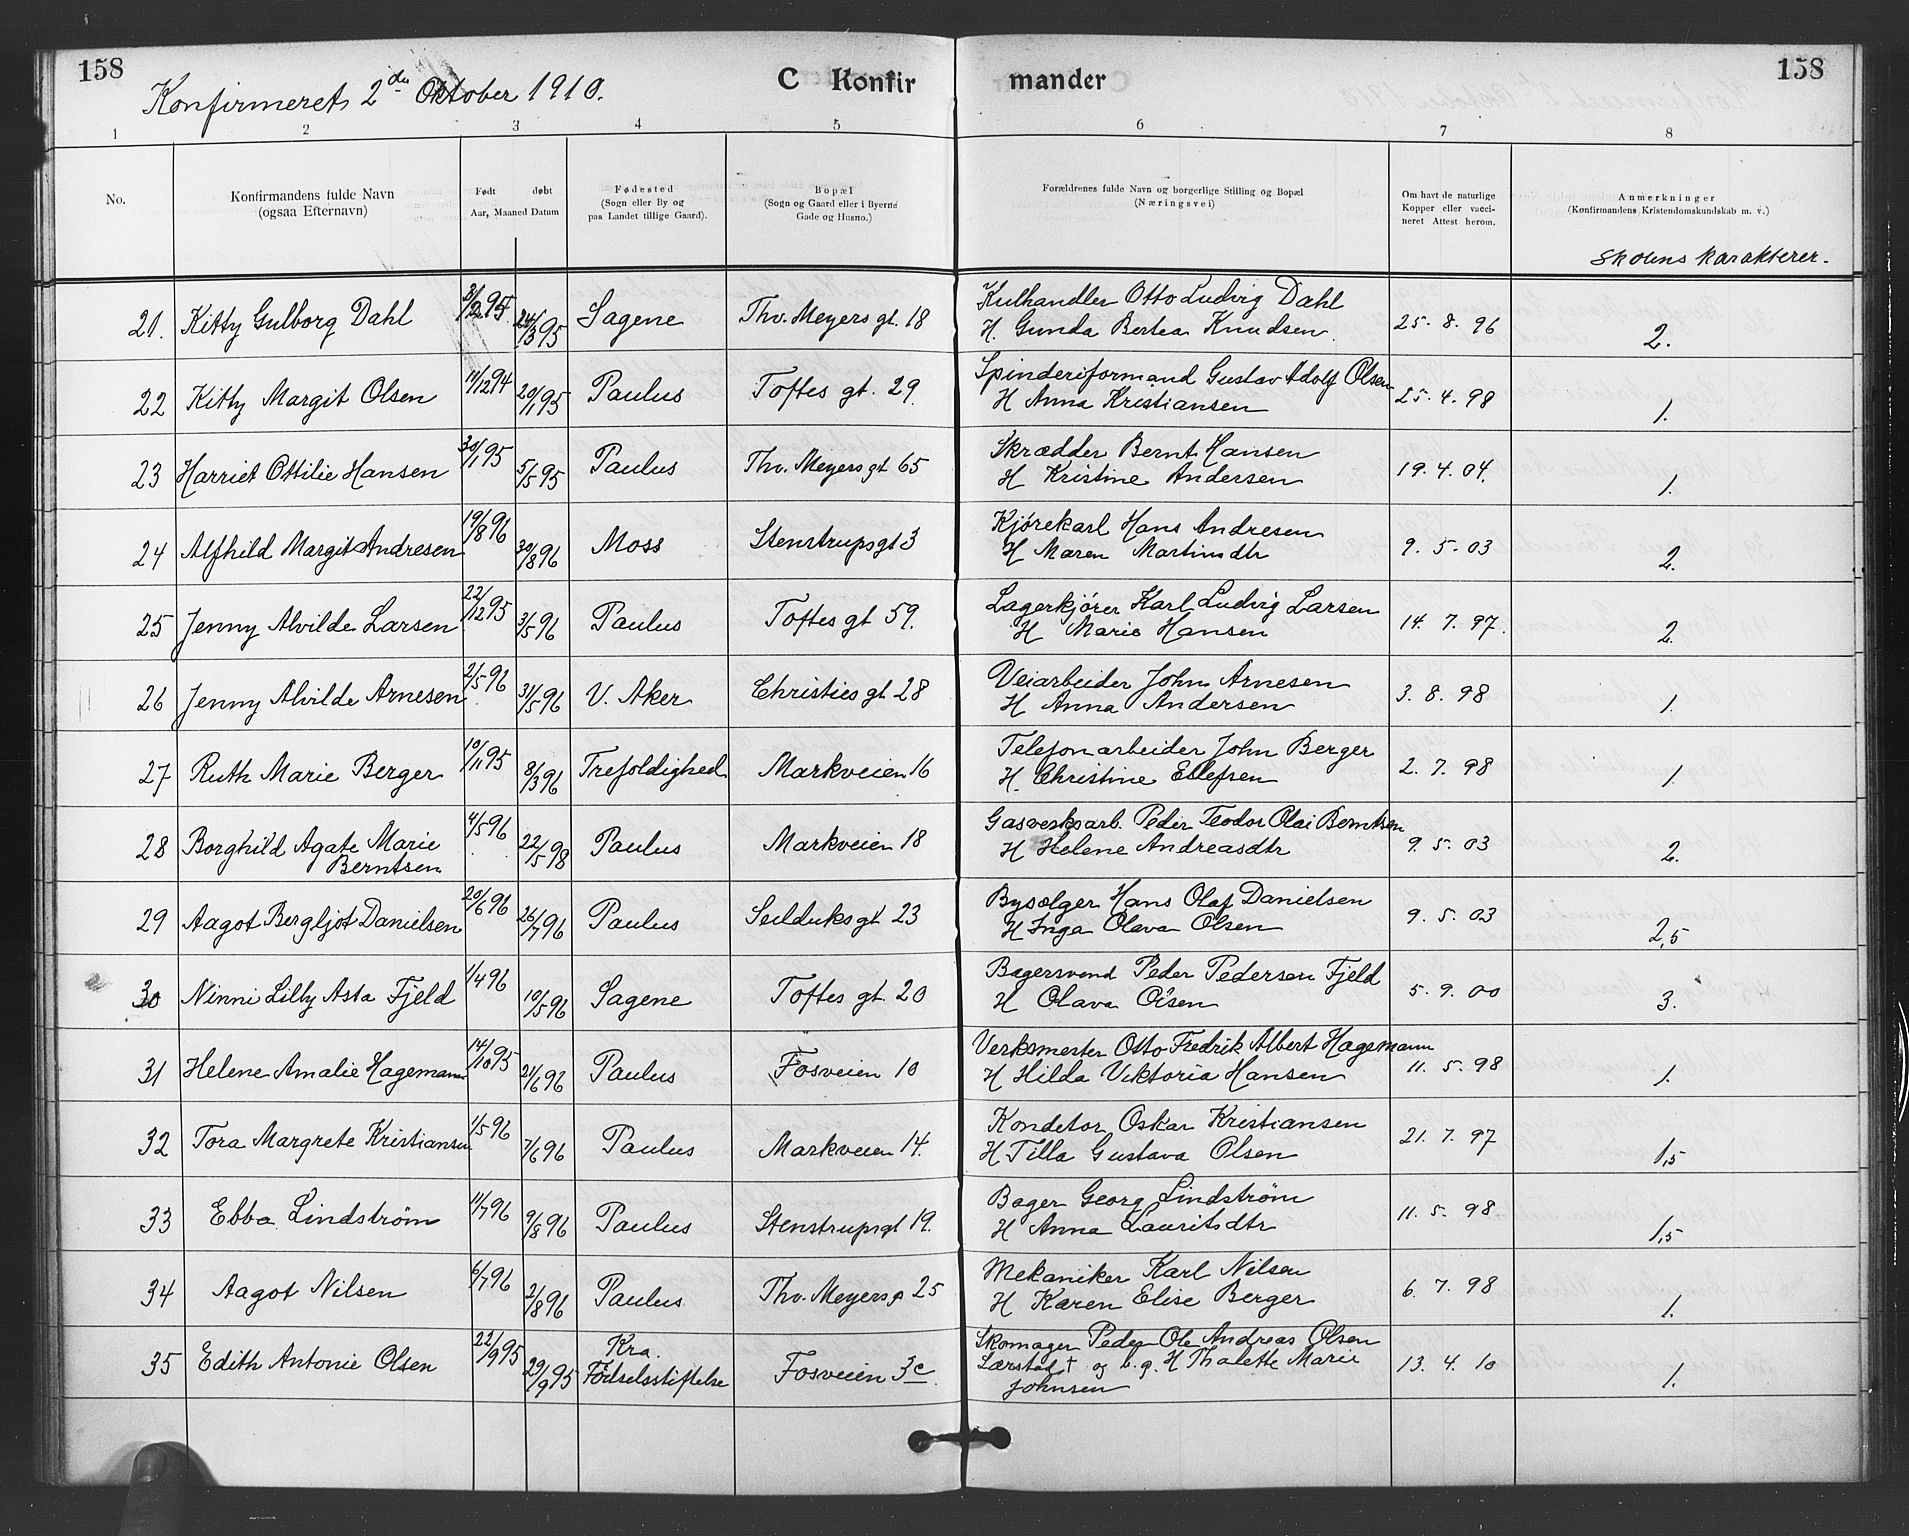 158
Konfirmeret 2den Oktober 1910.
C Konfirmander
158
1 2 3 4 5 6 7 8
No.
Konfirmandens fulde Navn
(ogsaa Efternavn)
Født døbt
Aar, Maaned Datum
Fødested
(Sogn eller By og
paa Landet tillige Gaard).
Bopæl
(Sogn og Gaard eller i Byerne
Gade og Husno.)
Forældrenes fulde Navn og borgerlige Stilling og Bopæl
(Næringsvei)
Om havt de naturlige
Kopper eller vacci-
neret Attest herom.
Anmerkninger
(Konfirmandens Kristendomskundskab m. v.)
Skolens karakterer.
21. Kitty Gulborg Dahl 24/3 95 Sagene Thv. Meyers gt. 18 Kulhandler Otto Ludvig Dahl
H. Gunda Bertea Knudsen 25. 8. 96 2.
22 Kitty Margit Olsen 11/12 94 20/1 95 Paulus Toftes gt. 29 Spinderiformand Gustav Adolf Olsen
H Anna Kristiansen 25. 4. 98 1.
23 Harriet Ottilie Hansen 30/1 95 5/5 95 Paulus Thv. Meyers gt 65 Skrædder Bernt Hansen
H Kristine Andersen 19. 4. 04. 1.
24 Alfhild Margit Andresen 19/8 96 30/8 96 Moss Stenstrupsgt 3 Kjørekarl Hans Andresen
H Maren Martinsdtr 9. 5. 03 2.
25 Jenny Alvilde Larsen 22/12 95 3/5 96 Paulus Toftes gt 59. Lagerkjører Karl Ludvig Larsen
H Marie Hansen 14. 7. 97. 2.
26 Jenny Alvilde Arnesen 2/5 96 31/5 96 V. Aker Christies gt 28 Veiarbeider John Arnesen
H Anna Andersen 3. 8. 98 1.
27 Ruth Marie Berger 10/11 95 8/3 96 Trefoldighed Markveien 16 Telefonarbeider John Berger
H. Christine Ellefsen 2. 7. 98 1.
28 Borghild Agate Marie
Berntsen 4/5 96 22/5 98 Paulus Markveien 18 Gasverksarb. Peder Teodor Olai Berntsen
H Helene Andreasdtr 9. 5. 03 2.
29 Aagot Bergljot Danielsen 20/6 96 26/7 96 Paulus Seilduksgt 23 Bysælger Hans Olaf Danielsen
H Inga Olava Olsen 9. 5. 03 2,5
30 Ninni Lilly Asta Fjeld 1/4 96 10/5 96 Sagene Toftes gt. 20 Bagersvend Peder Pedersen Fjeld
H Olava Olsen 5. 9. 00 3.
31 Helene Amalie Hagemann 14/10 95 21/6 96 Paulus Fosveien 10 Verksmester Otto Fredrik Albert Hagemann
H Hilda Viktoria Hansen 11. 5. 98 1.
32 Tora Margrete Kristiansen 1/5 96 7/6 96 Paulus Markveien 14. Konditor Oskar Kristiansen
H Tilla Gustava Olsen 21. 7. 97 1,5
33 Ebba Lindstrøm 11/7 96 9/8 96 Paulus Stenstrupsgt 19. Bager Georg Lindstrøm
H Anna Lauritsdtr 11. 5. 98 1,5
34 Aagot Nilsen 6/7 96 2/8 96 Paulus Thv. Meyersg 25 Mekaniker Karl Nilsen
H Karen Elise Berger 6. 7. 98 1.
35 Edith Antonie Olsen 22/9 95 29/9 95 Kra.
Fødselsstiftelse Fosveien 3c. Skomager Peder Ole Andreas Olsen
Lærstad † og H Thalette Marie
Johnsen 13. 4. 10 1.